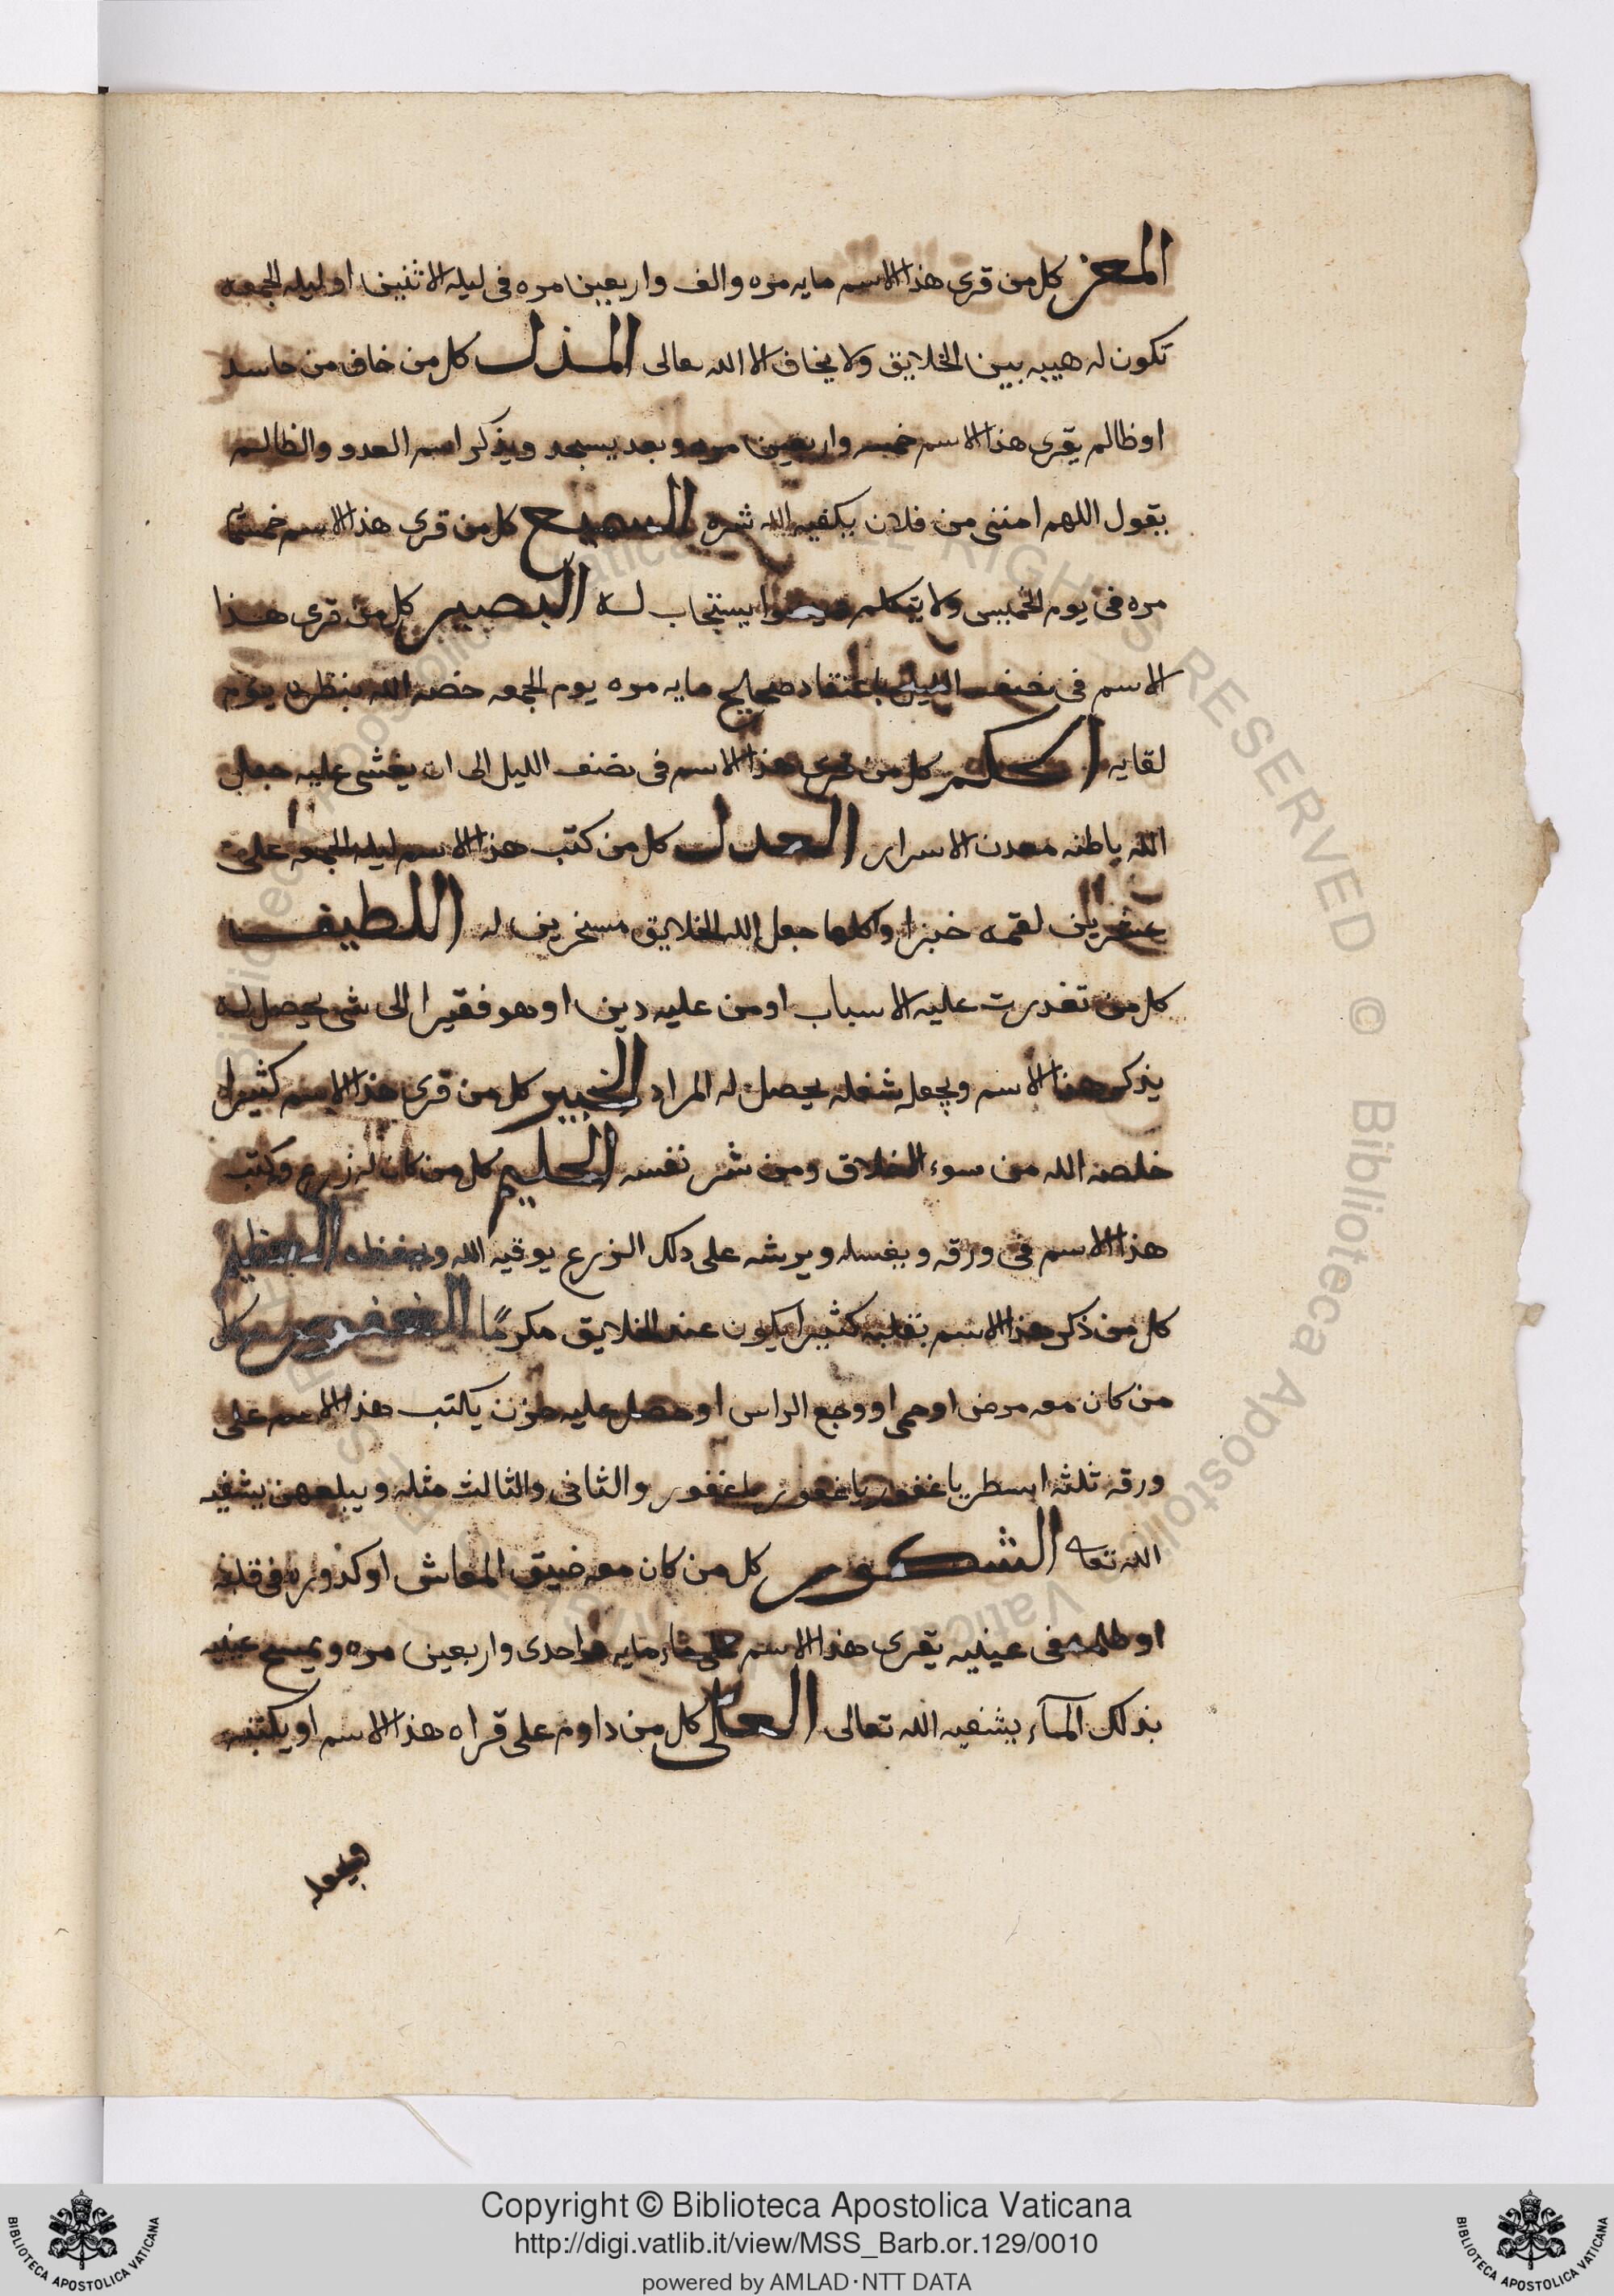 المعز كل من قرى هذا الاسم مايه مره والف واربعين مره فى ليله الاثنين او ليله الجمعه
تكون له هيبه بين الخلايق ولا يخاف الا الله تعالى المذل كل من خاف من حاسد
او ظالم يقرى هذا الاسم خمسه واربعين مره وبعد يسجد ويذكر اسم العدو والظالم
يقول اللهم امننى من فلان يكفيه الله شره السميع كل من قرى هذا الاسم
مره فى يوم الخميس ولا يتكلم يستجاب له البصير كل من قرى هذا
الاسم فى نصف الليل باعتقاد صحيح مايه مره يوم الجمعه خصه الله بنظره يوم
لقايه الحكم كل من قرى هذا الاسم فى نصف الليل الى ان يغشى عليه جعل
الله باطنه معدن الاسرار العدل كل من كتب هذا الاسم ليله الجمعه على
عشرين لقمه خبزا واكلها جعل الله الخلايق مسخرين له اللطيف
كل من تغدرت عليه الاسباب او من عليه دين او هو فقير الى شى يحصل له
يذكر هذا الاسم ويجعله شغله يحصل له المراد الخبير كل من قرى هذا الاسم كثيرا
خلصه الله من سوء الخلاق ومن شر نفسه الحليم كل من كان له زرع وكتب
هذا الاسم فى ورقه ويغسله ويرشه على دلك الزرع يوقيه الله ويحفظه العظيم
كل من ذكر هذا الاسم بقلبه كثيرا يكون عند الخلايق مكرمًا الغفور كل
من كان معه مرض او حمى او وجع الراس او حصل عليه حزن يكتب هذا الاسم على
ورقه ثلثه اسطر يا غفور يا غفور يا غفور والثانى والثالث مثله ويبلعهن يشفيه
الله تعا الشكور كل من كان معه ضيق المعاش او كدوره فى قلبه
او ظلمه فى عينيه يقرى هذا الاسم على ماء مايه واحدى واربعين مره ويمسح عينيه
بذلك المآء يشفيه الله تعالى العالى كل من داوم على قراه هذا الاسم او يكتبه
Copyright © Biblioteca Apostolica Vaticana
http://digi.vatlib.it/view/MSS_Barb.or.129/0010
powered by AMLAD·NTT DATA